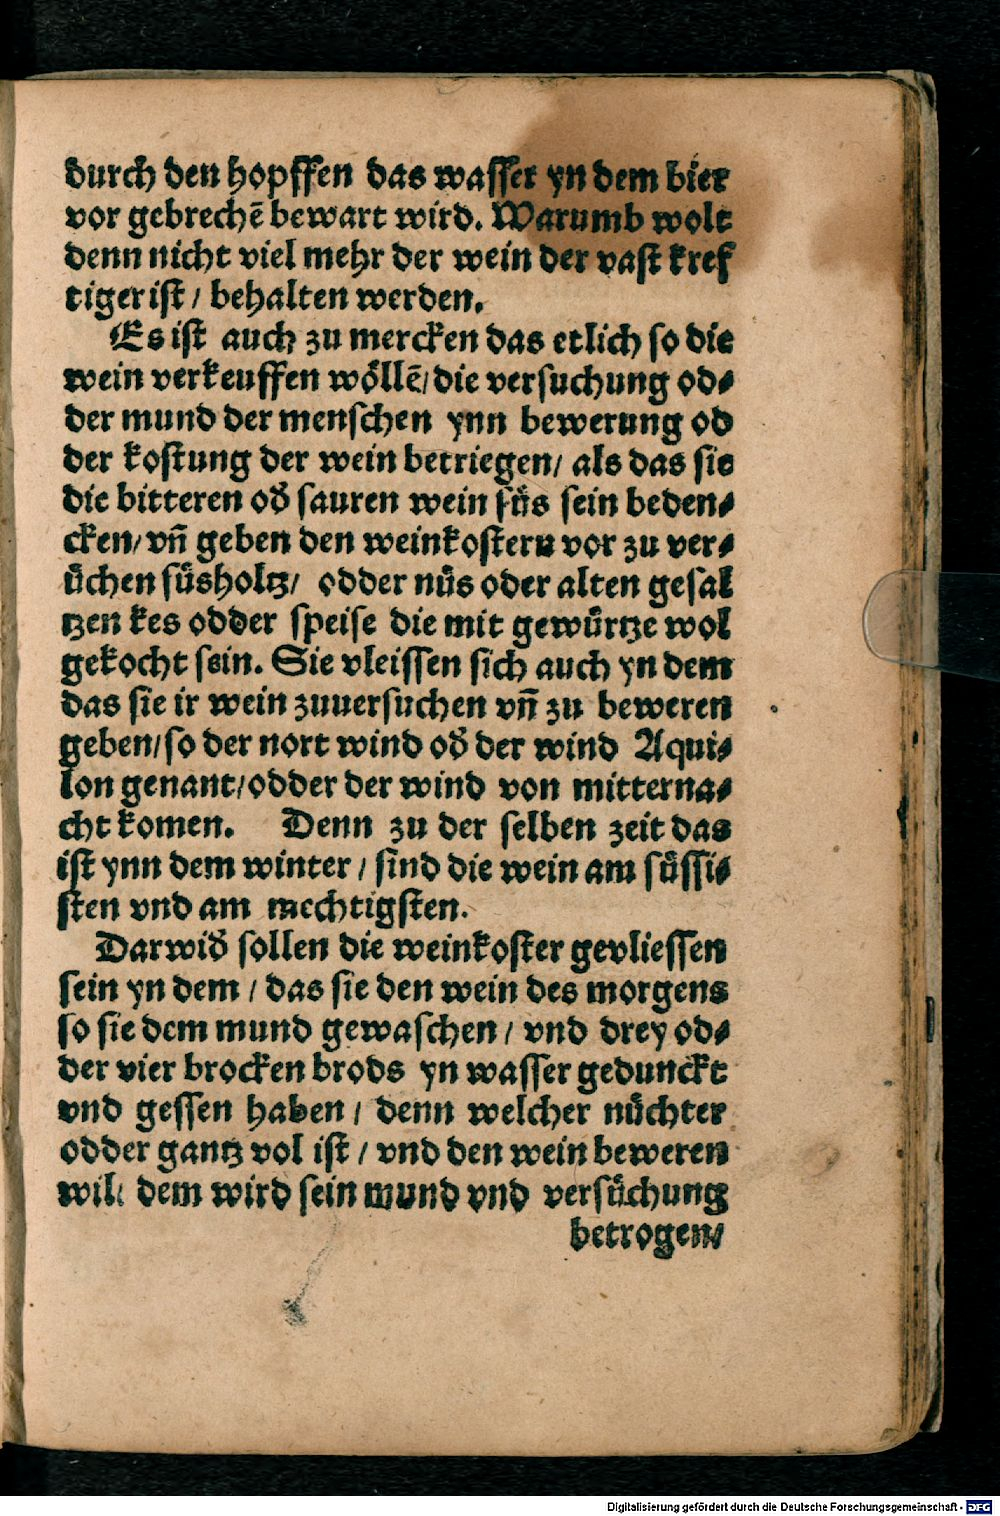 durch den hopffen das wasser yn dem bier
vor gebrechē bewart wird. Warumb wolt
denn nicht viel mehr der wein der vast kref
tiger ist / behalten werden.
Es ist auch zu mercken das etlich so die
wein verkeuffen wöllē/ die versuchung od⸗
der mund der menschen ynn bewerung od
der kostung der wein betriegen/ als das sie
die bitteren oď sauren wein süs sein beden⸗
cken/ vñ geben den weinkostern vor zu ver⸗
süchen süsholtz/ odder nüs oder alten gesal
tzen kes odder speise die mit gewürtze wol
gekocht sein. Sie vleissen sich auch yn dem
das sie ir wein zuuersuchen vñ zu beweren
geben/ so der nort wind oď der wind Aqui⸗
lon genant/ odder der wind von mitterna⸗
cht komen. Denn zu der selben zeit das
ist ynn dem winter / sind die wein am süssi⸗
sten vnd am mechtigsten.
Darwiď sollen die weinkoster gevliessen
sein yn dem / das sie den wein des morgens
so sie dem mund gewaschen / vnd drey od⸗
der vier brocken brods yn wasser gedunckt
vnd gessen haben / denn welcher nüchter
odder gantz vol ist / vnd den wein beweren
wil/ dem wird sein mund vnd versüchung
betrogen/
Digitalisierung gefördert durch die Deutsche Forschungsgemeinschaft - DFG